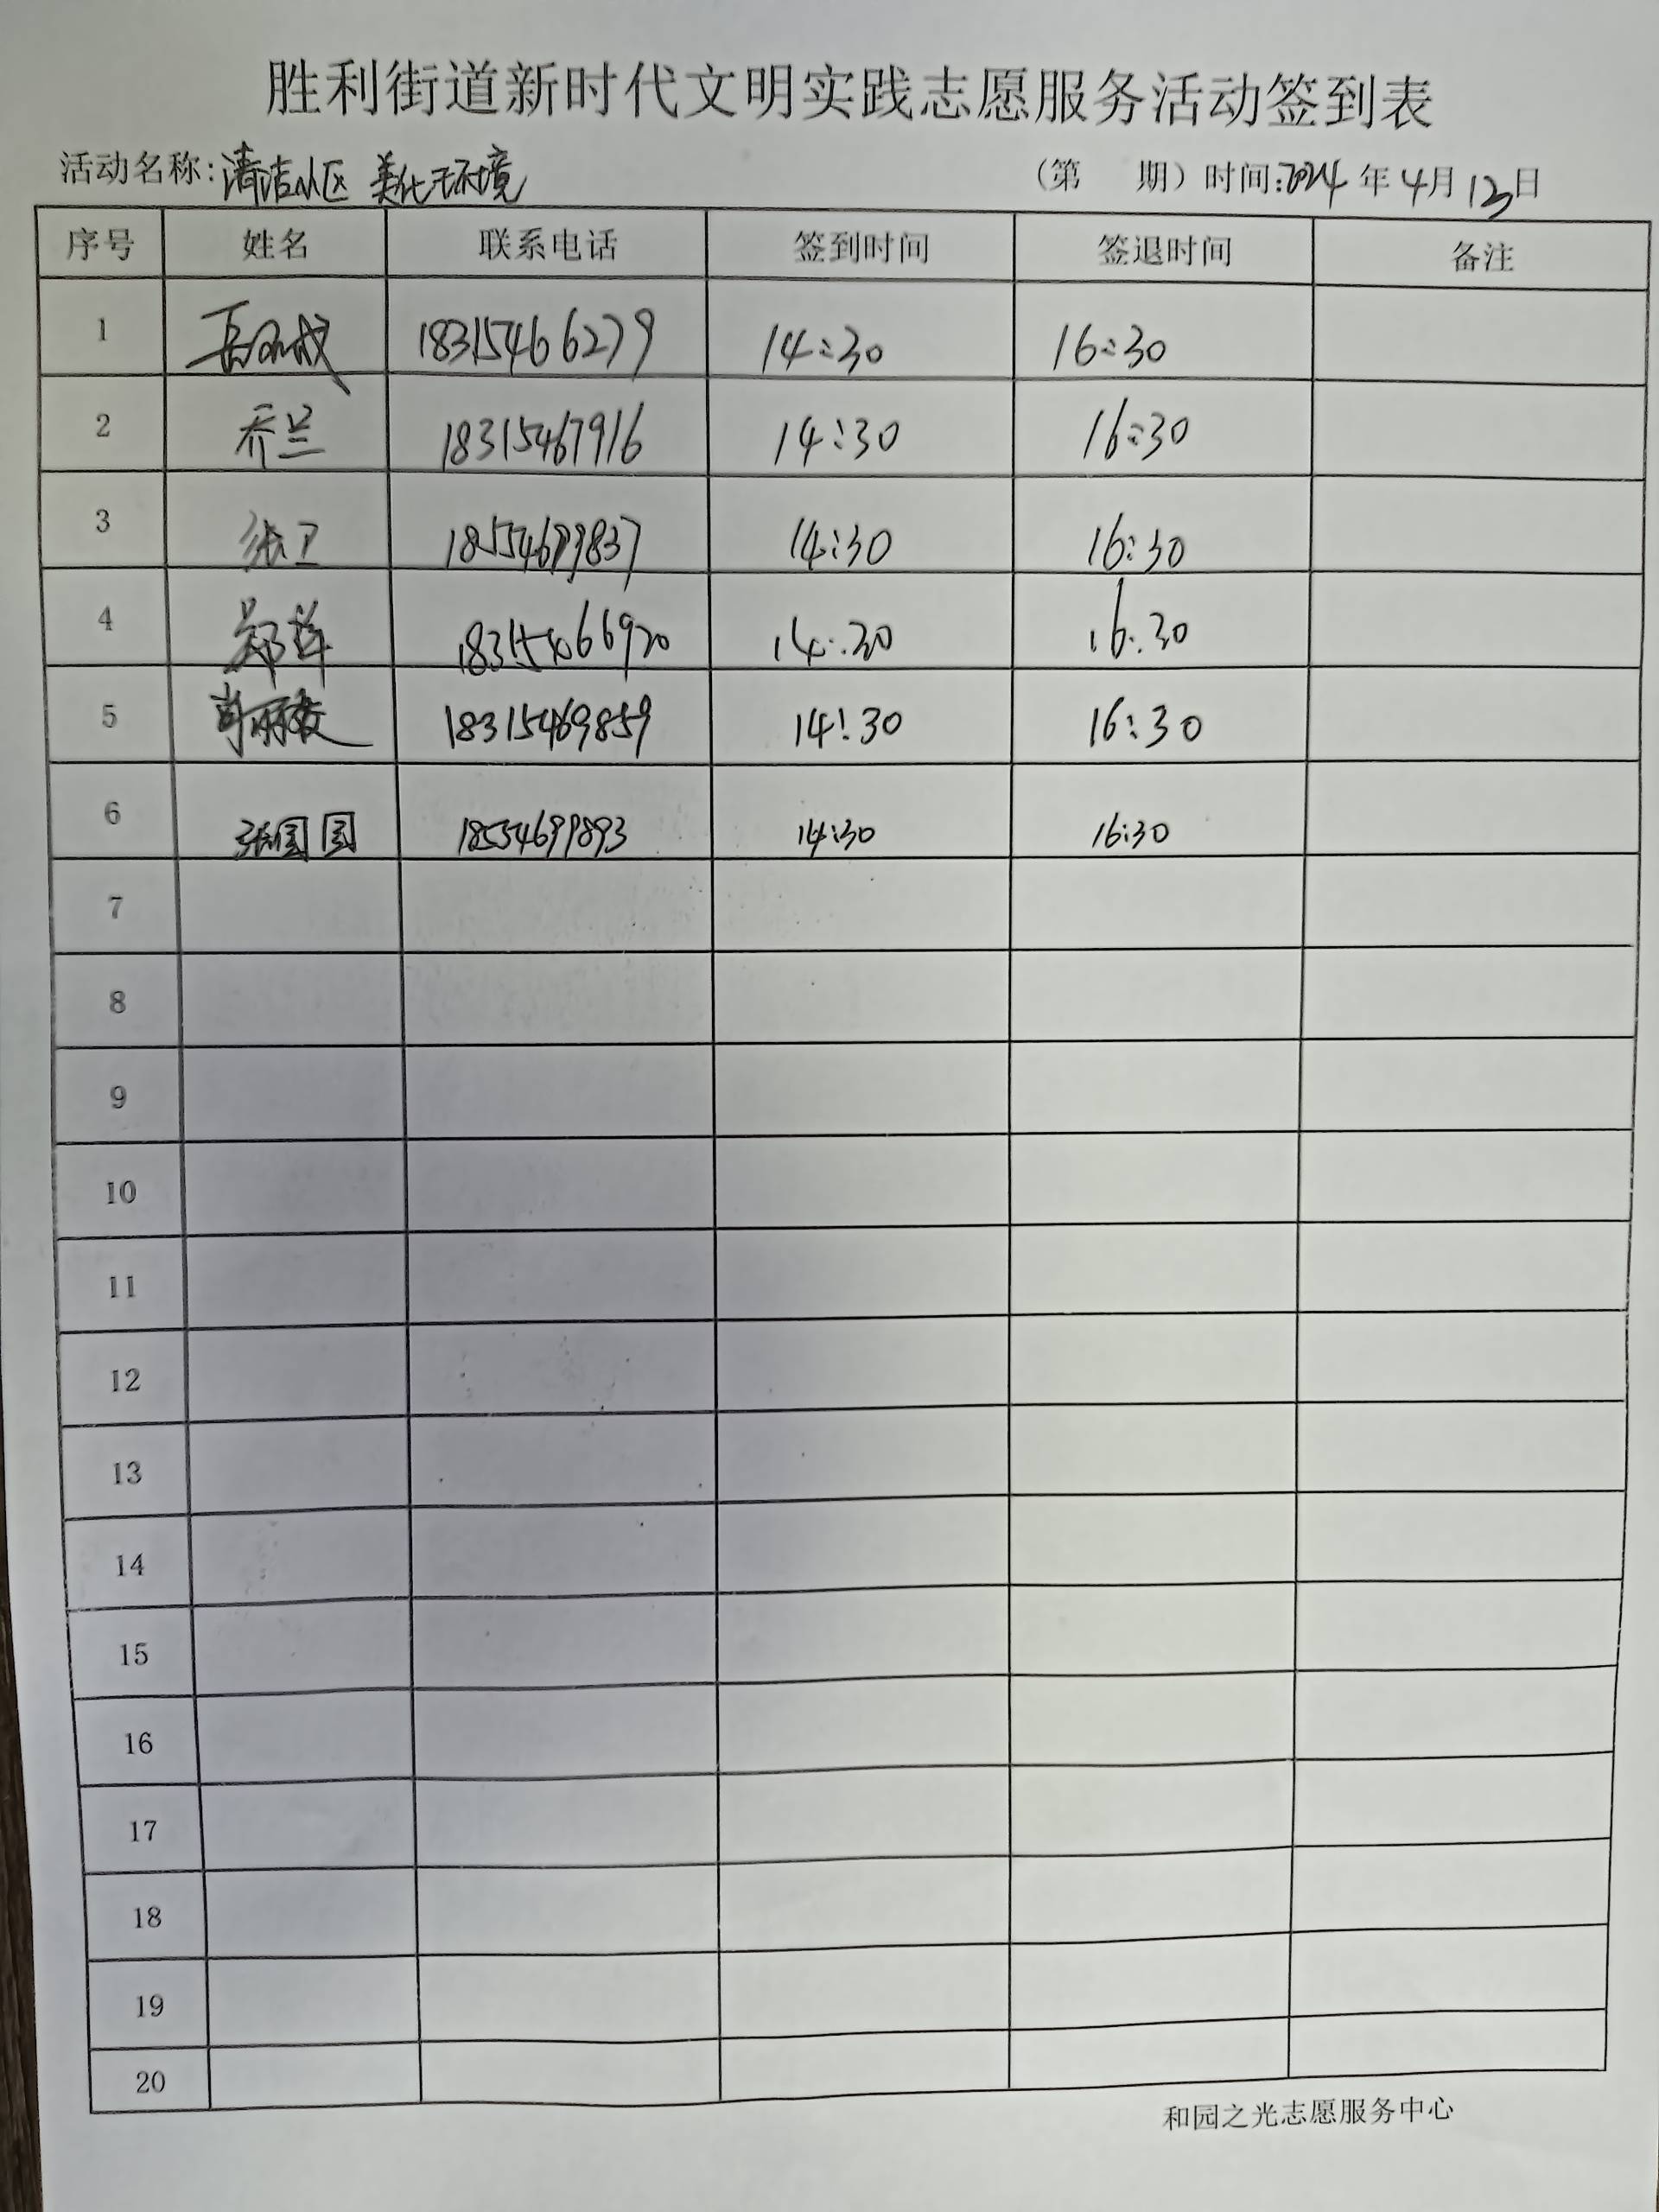 胜利街道新时代文明实践志愿服务活动签到表
活动名称:清洁小区 美化环境 (第 期) 时间:2024年4月13日
序号 姓名 联系电话 签到时间 签退时间 备注
1 18315466279 14:30 16:30
2 乔兰 18315467916 14:30 16:30
3 张卫 14:30 16:30
4 郑萍 18315466920 14:30 16:30
5 18315469859 14:30 16:30
6 张园园 18554699893 14:30 16:30
7
8
9
10
11
12
13
14
15
16
17
18
19
20
和园之光志愿服务中心